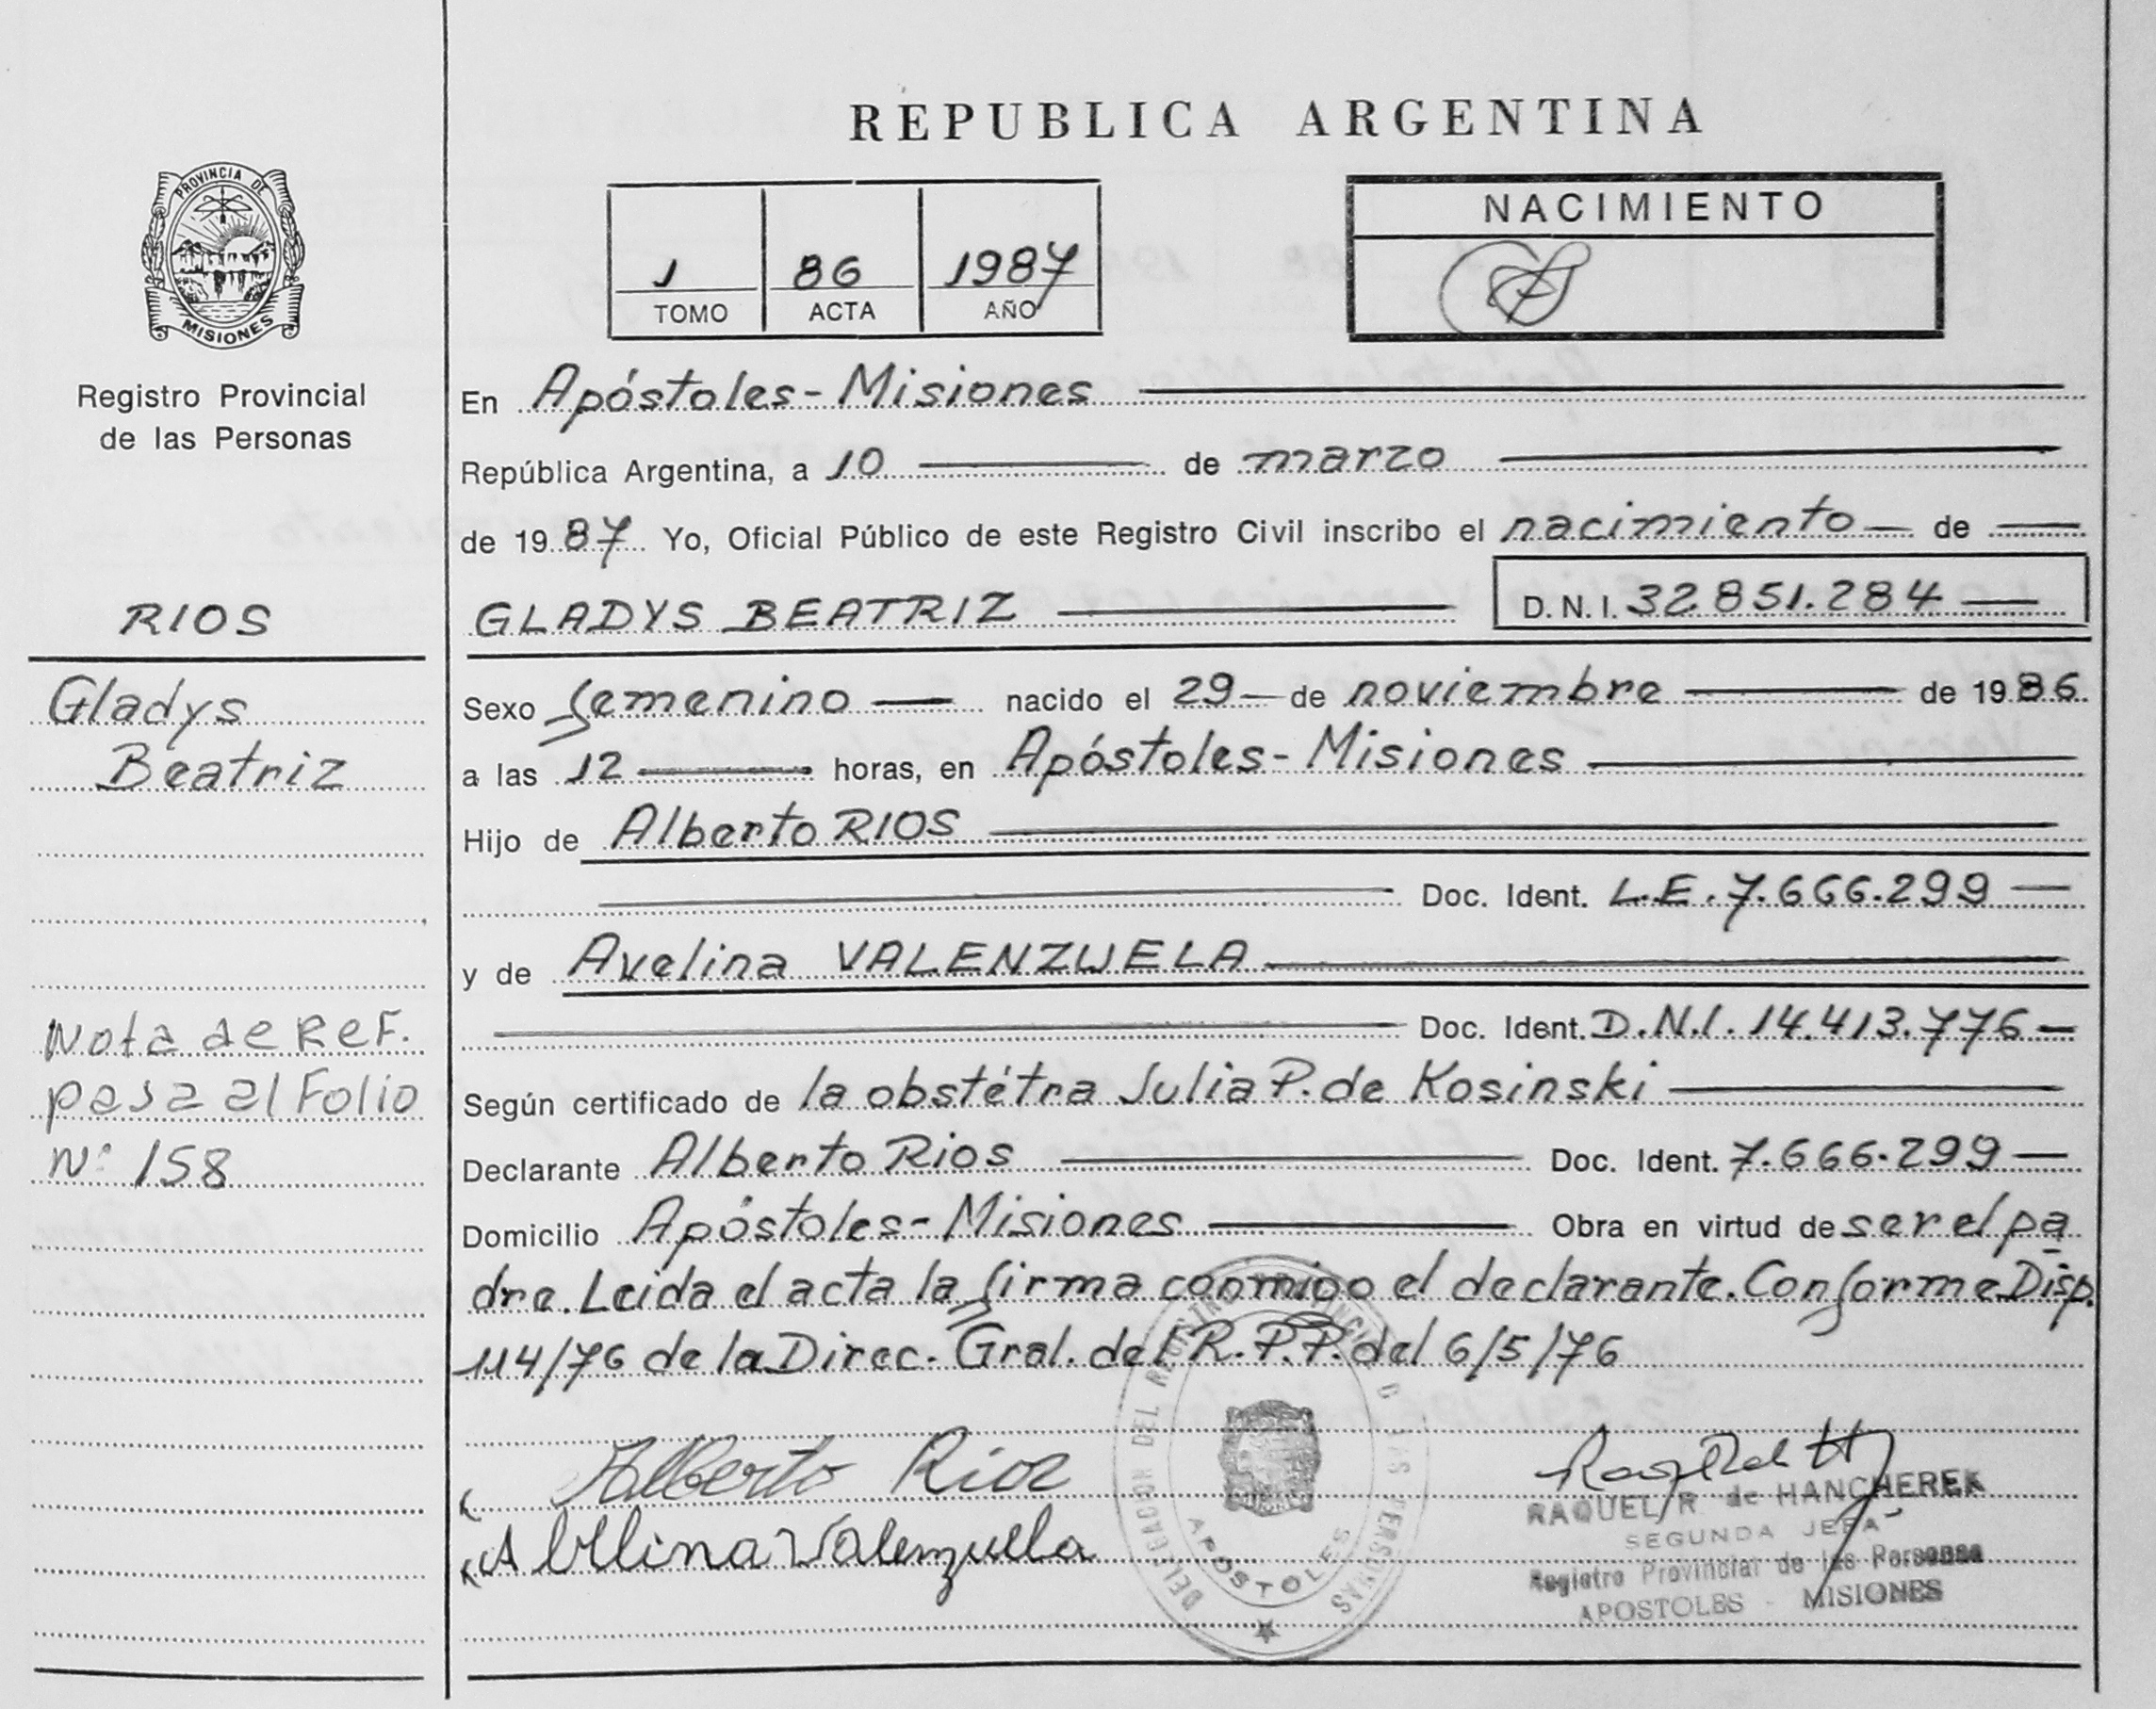 REPUBLICA ARGENTINA
PROVINCIA DE
MISIONES
Registro Provincial
de las Personas
1 86 1987
TOMO ACTA AÑO
NACIMIENTO
En Apóstoles - Misiones
República Argentina, a 10 de marzo
de 1987 Yo, Oficial Público de este Registro Civil inscribo el nacimiento de
RIOS
GLADYS BEATRIZ D.N.I. 32.851.284
Gladys
Beatriz
Sexo femenino nacido el 29 de noviembre de 1986.
a las 12 horas, en Apóstoles - Misiones
Hijo de Alberto RIOS
Doc. Ident. L.E. 7.666.299
y de Avelina VALENZUELA
Doc. Ident. D.N.I. 14.413.776
Nota de Ref.
pasa al Folio
Nº 158
Según certificado de la obstétra Julia P. de Kosinski
Declarante Alberto Rios Doc. Ident. 7.666.299
Domicilio Apóstoles - Misiones Obra en virtud de ser el pa
dre. Leida el acta la firma conmigo el declarante. Conforme Disp.
114/76 de la Direc. Gral. del R.P.P. del 6/5/76
Alberto Rios
Avelina Valenzuela
DELEGACION DEL REGISTRO PROVINCIAL D LAS PERSONAS
APOSTOLES
RAQUEL R. de HANCHEREK
SEGUNDA JEFA
Registro Provincial de las Personas
APOSTOLES - MISIONES